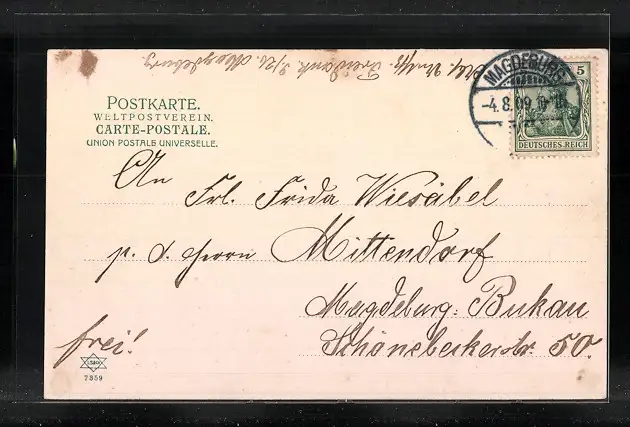 POSTKARTE.
WELTPOSTVEREIN.
CARTE-POSTALE.
UNION POSTALE UNIVERSELLE.
MAGDEBURG
-4.8.09.
5
DEUTSCHES REICH
An
Frl. Frida Wiesäbel
p. d. Herrn Mittendorf
Magdeburg-Bukau
Schönebeckerstr. 50.
frei!
7359
Magdeburg